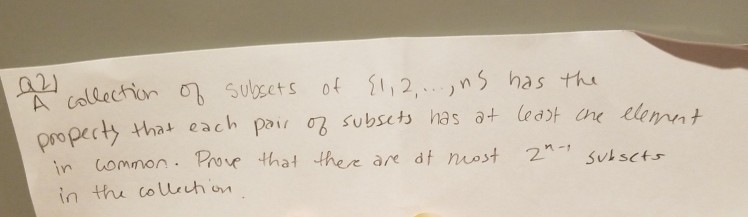 Q2)
A collection of subsets of {1,2,...,n} has the
property that each pair of subsets has at least one element
in common. Prove that there are at most 2^{n-1} subsets
in the collection.